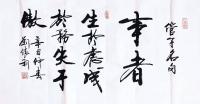 管子名句
事者
生於慮成
於務失于
傲
辛丑仲春